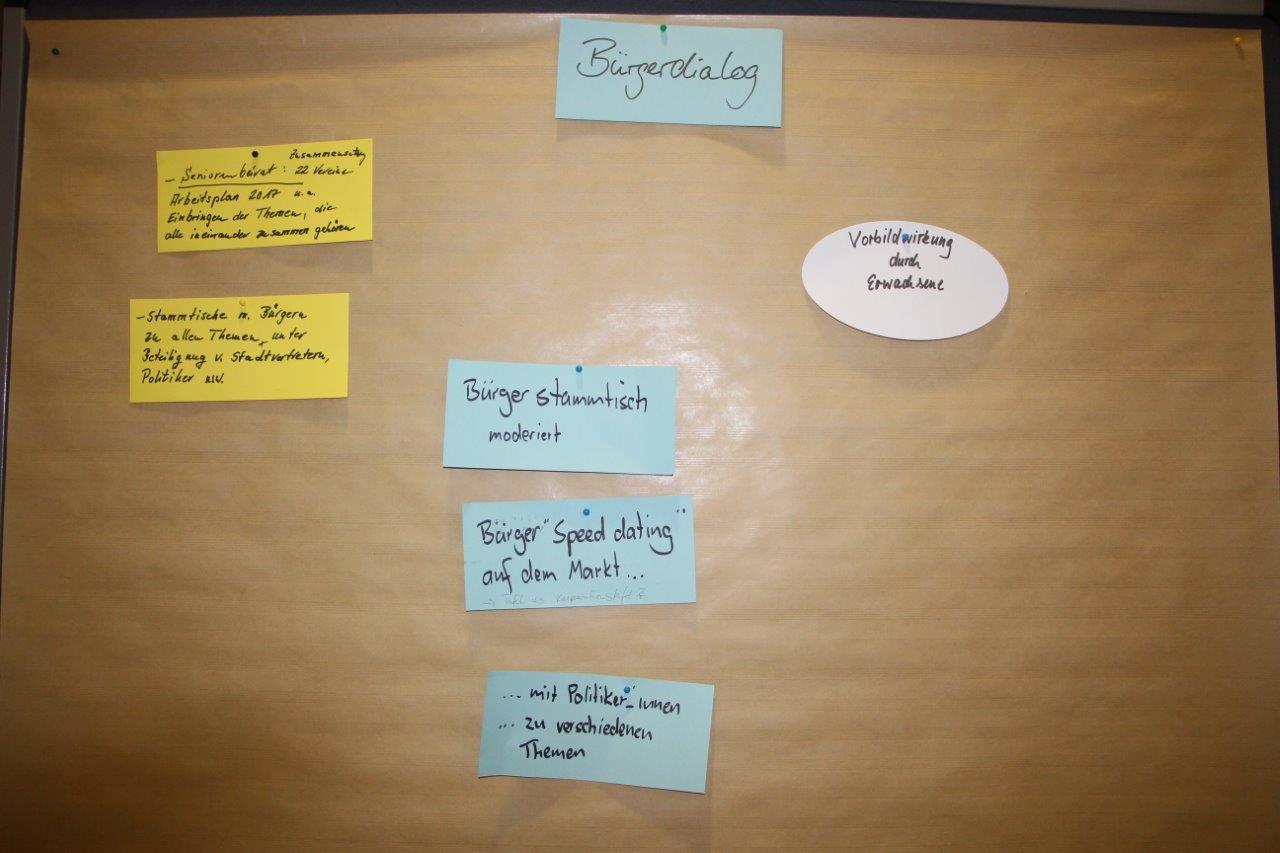 Bürgerdialog
Zusammensetzung
- Seniorenbeirat: 22 Vereine
Arbeitsplan 2017 u.a.
Einbringen der Themen, die
alle ineinander zusammen gehören
- Stammtische m. Bürgern
zu allen Themen, unter
Beteiligung v. Stadtvertretern,
Politiker usw.
Vorbildwirkung
durch
Erwachsene
Bürgerstammtisch
moderiert
Bürger "Speed dating"
auf dem Markt...
... mit Politiker_innen
... zu verschiedenen
Themen